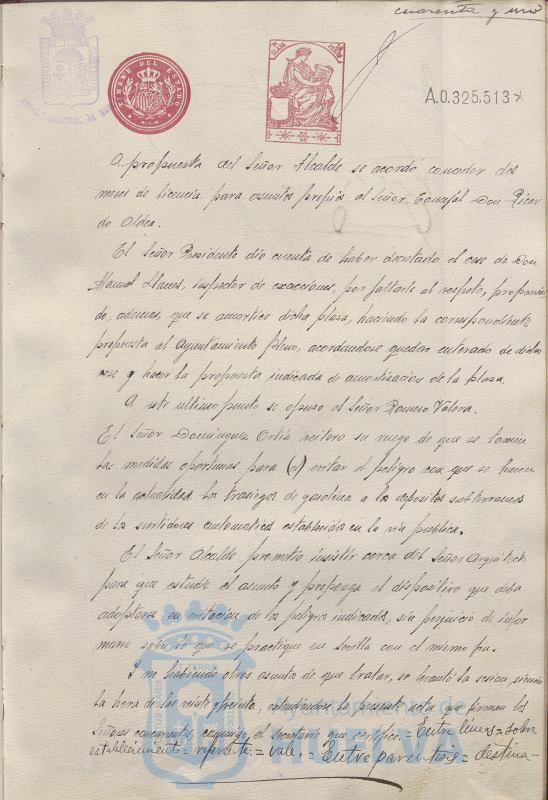 cuarenta y uno
TIMBRE DEL ESTADO
A.0.325.513
A propuesta del Señor Alcalde se acordó conceder dos
meses de licencia para asuntos propios al Señor Concejal Don Ricar
do Aldea.
El Señor Presidente dio cuenta de haber decretado el cese de Don
Manuel Llanes, inspector de exacciones, por faltarle al respeto, proponien
do, ademas que se amortice dicha plaza, haciendo la correspondiente
propuesta al Ayuntamiento Pleno, acordandose quedar enterado de dicho
cese y hacer la propuesta indicada de amortizacion de la plaza.
A este ultimo punto se opuso el Señor Romero Valera.
El Señor Dominguez Ortiz reitero su ruego de que se tomen
las medidas oportunas para (el) evitar el peligro con que se hacen
en la actualidad los trasiegos de gasolina a los depositos subterraneos
de los surtidores automaticos establecidos en la via publica.
El Señor Alcalde prometio insistir cerca del Señor Arquitecto
para que estudie el asunto y proponga el dispositivo que deba
adoptarse en evitacion de los peligros indicados, sin perjuicio de infor
marse sobre lo que se practique en Sevilla con el mismo fin.
Y no habiendo otros asuntos de que tratar, se levantó la sesion, siendo
la hora de las veinte y treinta, extendiendose la presente acta que firman los
Señores concurrentes, conmigo, el secretario que certifico. = Entre lineas = sobre
establecimiento = = vale. = Entre parentesis = destina-
Ayuntamiento de
HUELVA